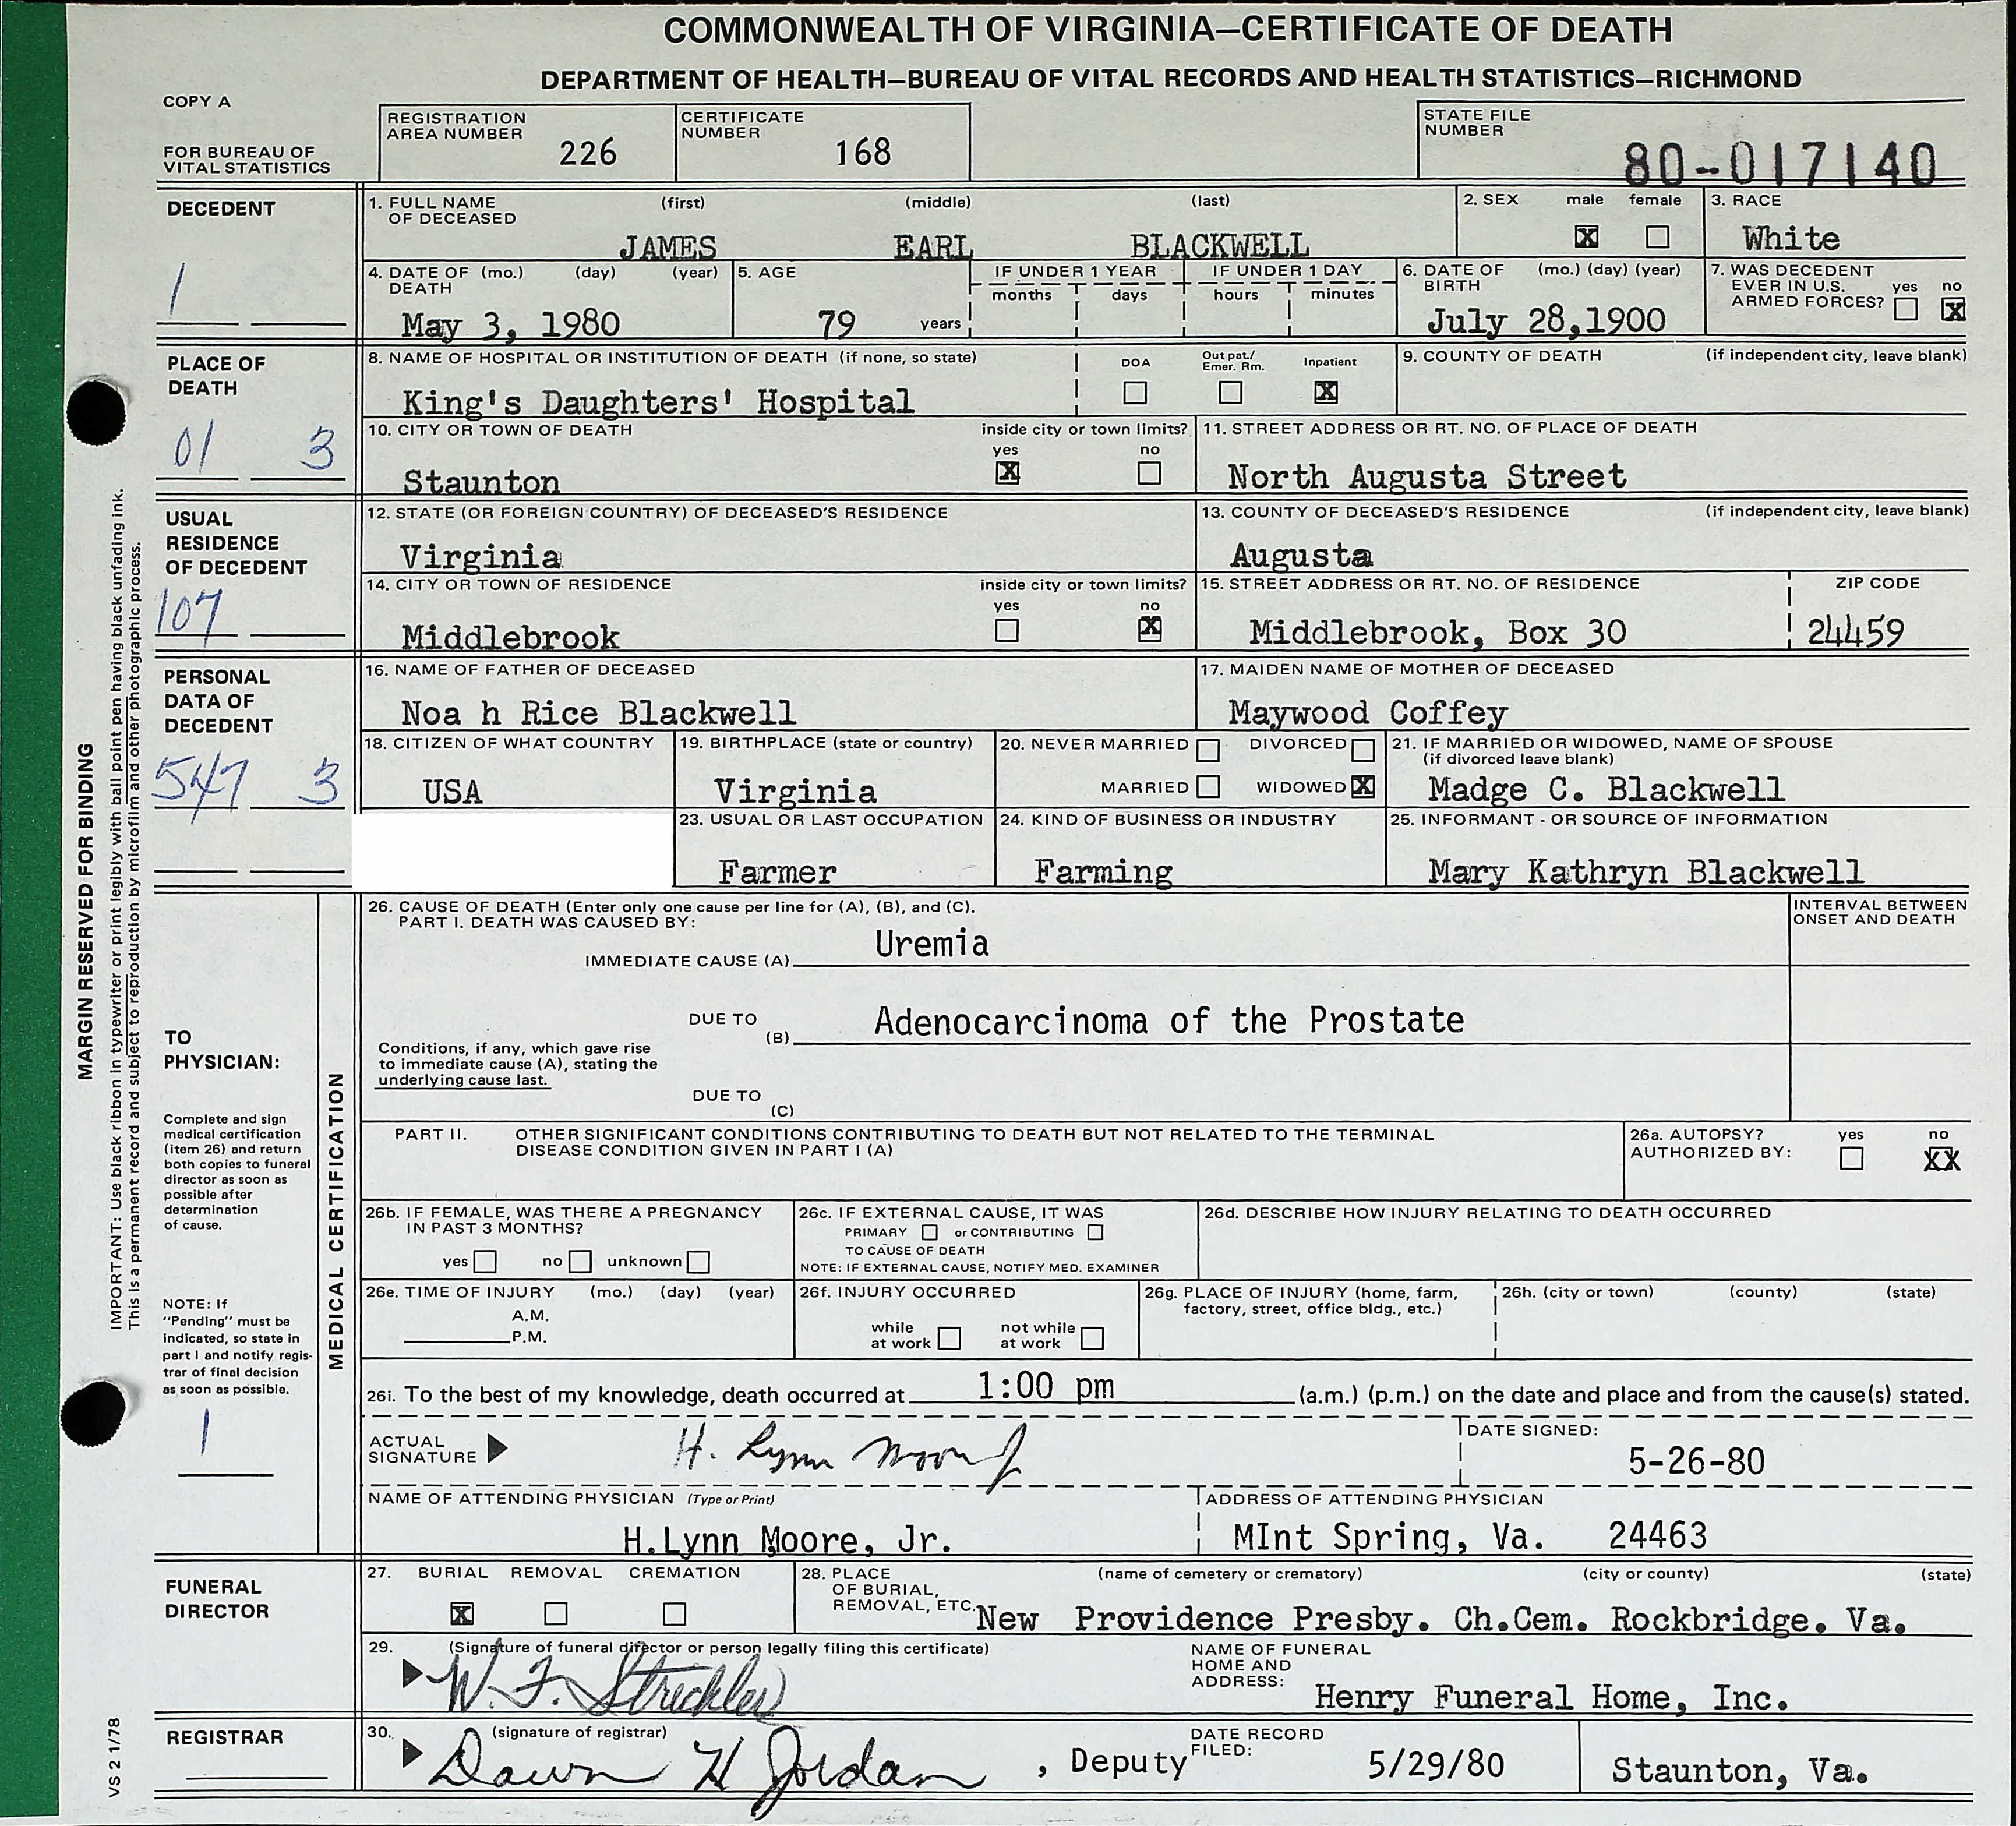 COMMONWEALTH OF VIRGINIA—CERTIFICATE OF DEATH
DEPARTMENT OF HEALTH—BUREAU OF VITAL RECORDS AND HEALTH STATISTICS—RICHMOND
COPY A
FOR BUREAU OF
VITAL STATISTICS
REGISTRATION
AREA NUMBER 226
CERTIFICATE
NUMBER 168
STATE FILE
NUMBER 80-017140
DECEDENT
1
1. FULL NAME (first) (middle) (last)
OF DECEASED
JAMES EARL BLACKWELL
2. SEX male female
X
3. RACE
White
4. DATE OF (mo.) (day) (year)
DEATH
May 3, 1980
5. AGE
79 years
IF UNDER 1 YEAR
months days
IF UNDER 1 DAY
hours minutes
6. DATE OF (mo.) (day) (year)
BIRTH
July 28,1900
7. WAS DECEDENT
EVER IN U.S. yes no
ARMED FORCES? X
PLACE OF
DEATH
01 3
8. NAME OF HOSPITAL OR INSTITUTION OF DEATH (if none, so state)
King's Daughters' Hospital
DOA Out pat./ Inpatient
Emer. Rm.
X
9. COUNTY OF DEATH (if independent city, leave blank)
10. CITY OR TOWN OF DEATH inside city or town limits?
yes no
Staunton X
11. STREET ADDRESS OR RT. NO. OF PLACE OF DEATH
North Augusta Street
USUAL
RESIDENCE
OF DECEDENT
107
12. STATE (OR FOREIGN COUNTRY) OF DECEASED'S RESIDENCE
Virginia
13. COUNTY OF DECEASED'S RESIDENCE (if independent city, leave blank)
Augusta
14. CITY OR TOWN OF RESIDENCE inside city or town limits?
yes no
Middlebrook X
15. STREET ADDRESS OR RT. NO. OF RESIDENCE ZIP CODE
Middlebrook, Box 30 24459
PERSONAL
DATA OF
DECEDENT
547 3
16. NAME OF FATHER OF DECEASED
Noa h Rice Blackwell
17. MAIDEN NAME OF MOTHER OF DECEASED
Maywood Coffey
18. CITIZEN OF WHAT COUNTRY
USA
19. BIRTHPLACE (state or country)
Virginia
20. NEVER MARRIED DIVORCED
MARRIED WIDOWED X
21. IF MARRIED OR WIDOWED, NAME OF SPOUSE
(if divorced leave blank)
Madge C. Blackwell
23. USUAL OR LAST OCCUPATION
Farmer
24. KIND OF BUSINESS OR INDUSTRY
Farming
25. INFORMANT - OR SOURCE OF INFORMATION
Mary Kathryn Blackwell
MARGIN RESERVED FOR BINDING
IMPORTANT: Use black ribbon in typewriter or print legibly with ball point pen having black unfading ink.
This is a permanent record and subject to reproduction by microfilm and other photographic process.
VS 2 1/78
TO
PHYSICIAN:
Complete and sign
medical certification
(item 26) and return
both copies to funeral
director as soon as
possible after
determination
of cause.
NOTE: If
"Pending" must be
indicated, so state in
part I and notify regis-
trar of final decision
as soon as possible.
1
MEDICAL CERTIFICATION
26. CAUSE OF DEATH (Enter only one cause per line for (A), (B), and (C).
PART I. DEATH WAS CAUSED BY:
INTERVAL BETWEEN
ONSET AND DEATH
IMMEDIATE CAUSE (A) Uremia
DUE TO
(B) Adenocarcinoma of the Prostate
Conditions, if any, which gave rise
to immediate cause (A), stating the
underlying cause last.
DUE TO
(C)
PART II. OTHER SIGNIFICANT CONDITIONS CONTRIBUTING TO DEATH BUT NOT RELATED TO THE TERMINAL
DISEASE CONDITION GIVEN IN PART I (A)
26a. AUTOPSY? yes no
AUTHORIZED BY: XX
26b. IF FEMALE, WAS THERE A PREGNANCY
IN PAST 3 MONTHS?
yes no unknown
26c. IF EXTERNAL CAUSE, IT WAS
PRIMARY or CONTRIBUTING
TO CAUSE OF DEATH
NOTE: IF EXTERNAL CAUSE, NOTIFY MED. EXAMINER
26d. DESCRIBE HOW INJURY RELATING TO DEATH OCCURRED
26e. TIME OF INJURY (mo.) (day) (year)
A.M.
P.M.
26f. INJURY OCCURRED
while not while
at work at work
26g. PLACE OF INJURY (home, farm,
factory, street, office bldg., etc.)
26h. (city or town) (county) (state)
26i. To the best of my knowledge, death occurred at 1:00 pm (a.m.) (p.m.) on the date and place and from the cause(s) stated.
ACTUAL
SIGNATURE H. Lynn Moore Jr
DATE SIGNED:
5-26-80
NAME OF ATTENDING PHYSICIAN (Type or Print)
H.Lynn Moore, Jr.
ADDRESS OF ATTENDING PHYSICIAN
MInt Spring, Va. 24463
FUNERAL
DIRECTOR
27. BURIAL REMOVAL CREMATION
X
28. PLACE (name of cemetery or crematory) (city or county) (state)
OF BURIAL,
REMOVAL, ETC. New Providence Presby. Ch.Cem. Rockbridge. Va.
29. (Signature of funeral director or person legally filing this certificate)
W. F. Strickler
NAME OF FUNERAL
HOME AND
ADDRESS: Henry Funeral Home, Inc.
REGISTRAR
30. (signature of registrar)
Dawn H Jordan , Deputy
DATE RECORD
FILED: 5/29/80
Staunton, Va.